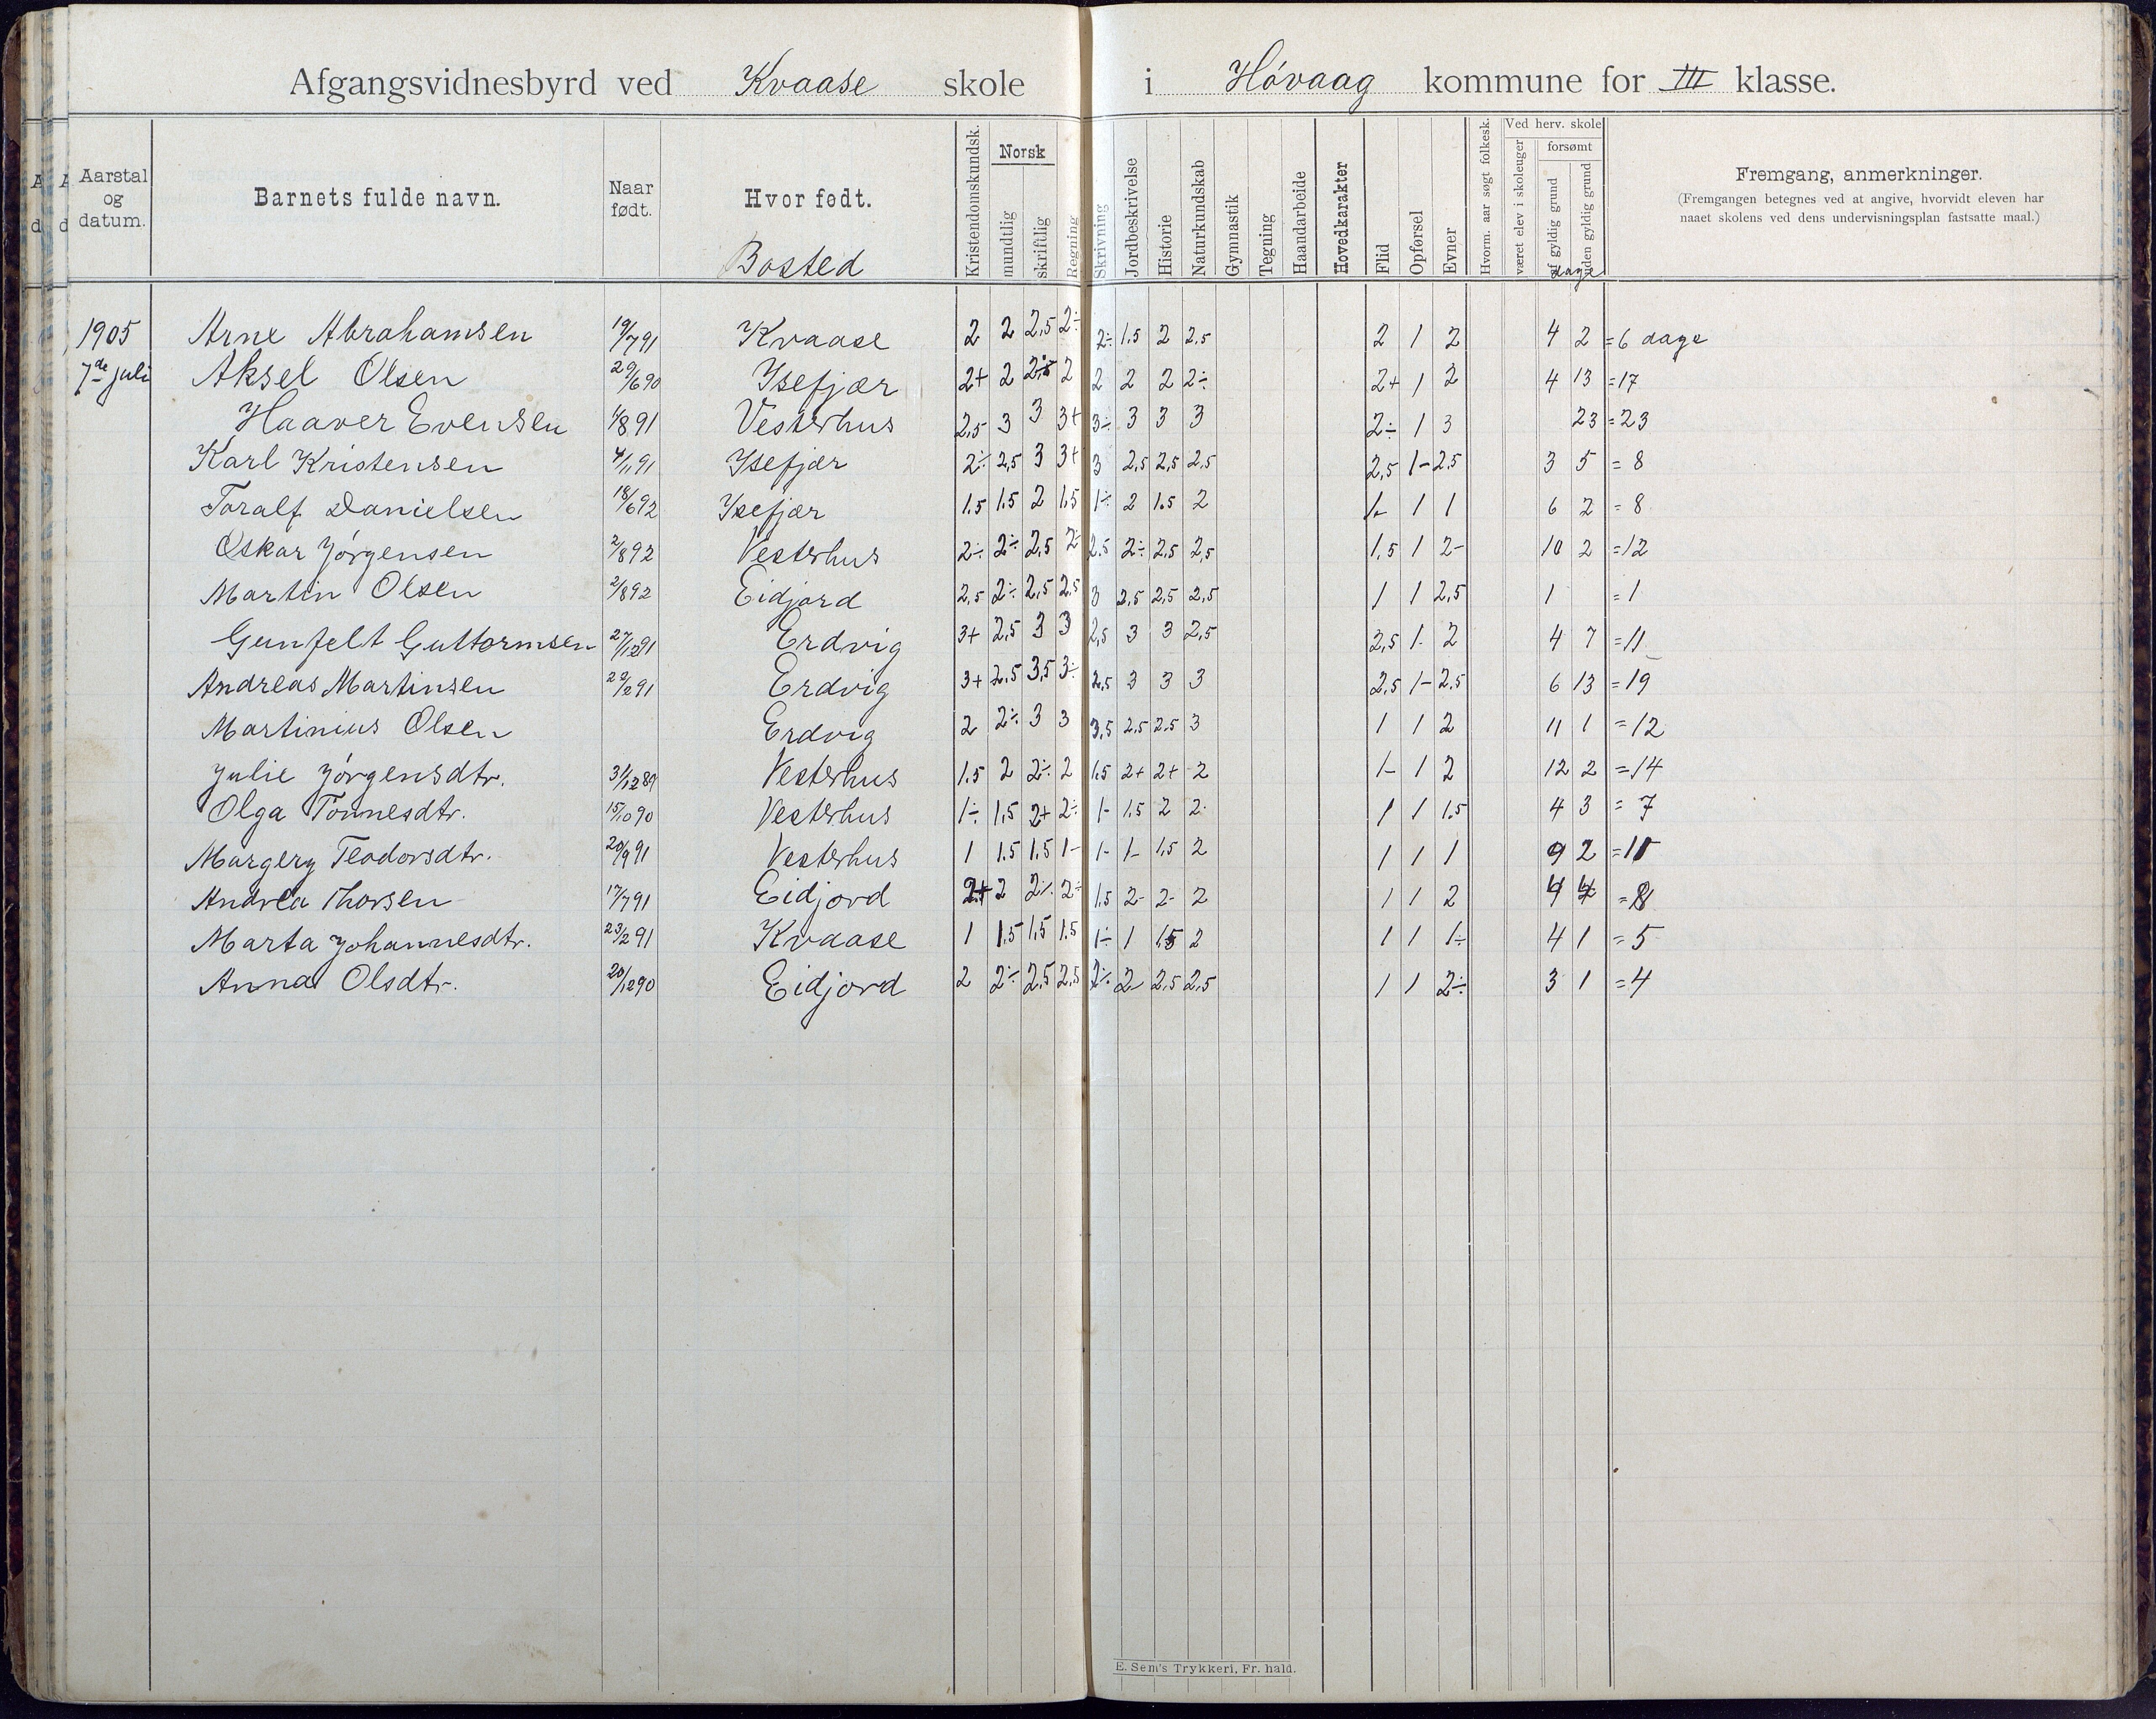 Afgangsvidnesbyrd ved Kvaase skole i Hóvaag kommune for III klasse.
Aarstal og datum.
Barnets fulde navn.
Naar født.
Hvor født.
Bosted
Kristendomskundsk.
Norsk
mundtlig
skriftlig
Regning
Skrivning
Jordbeskrivelse
Historie
Naturkundskab
Gymnastik
Tegning
Haandarbeide
Hovedkarakter
Flid
Opførsel
Evner
Hvorm. aar søgt folkesk.
Ved herv. skole
været elev i skoleuger
forsømt
af gyldig grund
uden gyldig grund
dage
Fremgang, anmerkninger.
(Fremgangen betegnes ved at angive, hvorvidt eleven har
naaet skolens ved dens undervisningsplan fastsatte maal.)
1905 Arne Abrahamsen 19/7 91 Kvaase 2 2 2,5 2÷ 2÷ 1.5 2 2.5 2 1 2 4 2 = 6 dage
7de juli Aksel Olsen 29/6 90 Isefjær 2+ 2 2 2 2 2 2÷ 2+ 1 2 4 13 = 17
Haaver Evensen 1/8 91 Vesterhus 2,5 3 3 3+ 3÷ 3 3 3 2÷ 1 3 23 = 23
Karl Kristensen 4/11 91 Isefjær 2÷ 2,5 3 3+ 3 2,5 2,5 2,5 2,5 1- 2.5 3 5 = 8
Toralf Danielsen 18/6 92 Isefjær 1.5 1.5 2 1,5 1÷ 2 1.5 2 1- 1 1 6 2 = 8
Oskar Jórgensen 2/8 92 Vesterhus 2÷ 2÷ 2,5 2- 2,5 2÷ 2,5 2,5 1,5 1 2- 10 2 = 12
Martin Olsen 2/8 92 Eidjord 2,5 2÷ 2,5 2,5 3 2,5 2,5 2,5 1 1 2,5 1 = 1
Gunfelt Guttormsen 27/12 91 Erdvig 3+ 2,5 3 3 2,5 3 3 2,5 2,5 1- 2 4 7 = 11
Andreas Martinsen 22/2 91 Erdvig 3+ 2.5 3,5 3÷ 2,5 3 3 3 2,5 1- 2.5 6 13 = 19
Martinius Olsen Erdvig 2 2÷ 3 3 3,5 2.5 2.5 3 1 1 2 11 1 = 12
Julie Jórgensdtr. 31/12 89 Vesterhus 1.5 2 2÷ 2 1.5 2+ 2+ 2 1- 1 2 12 2 = 14
Olga Tónnesdtr. 15/10 90 Vesterhus 1÷ 1,5 2+ 2÷ 1- 1,5 2 2- 1 1 1.5 4 3 = 7
Margery Teodorsdtr. 20/9 91 Vesterhus 1 1.5 1.5 1- 1- 1- 1,5 2 1 1 1 9 2 = 11
Andrea Thorsen 17/7 91 Eidjord 2+ 2 2÷ 2÷ 1.5 2- 2- 2 1 1 2 4 4 = 8
Marta Johannesdtr. 23/2 91 Kvaase 1 1.5 1,5 1.5 1÷ 1 1.5 2 1 1 1÷ 4 1 = 5
Anna Olsdtr. 20/12 90 Eidjord 2 2÷ 2,5 2,5 2÷ 2- 2,5 2,5 1 1 2÷ 3 1 = 4
E. Sem's Trykkeri, Fr. hald.